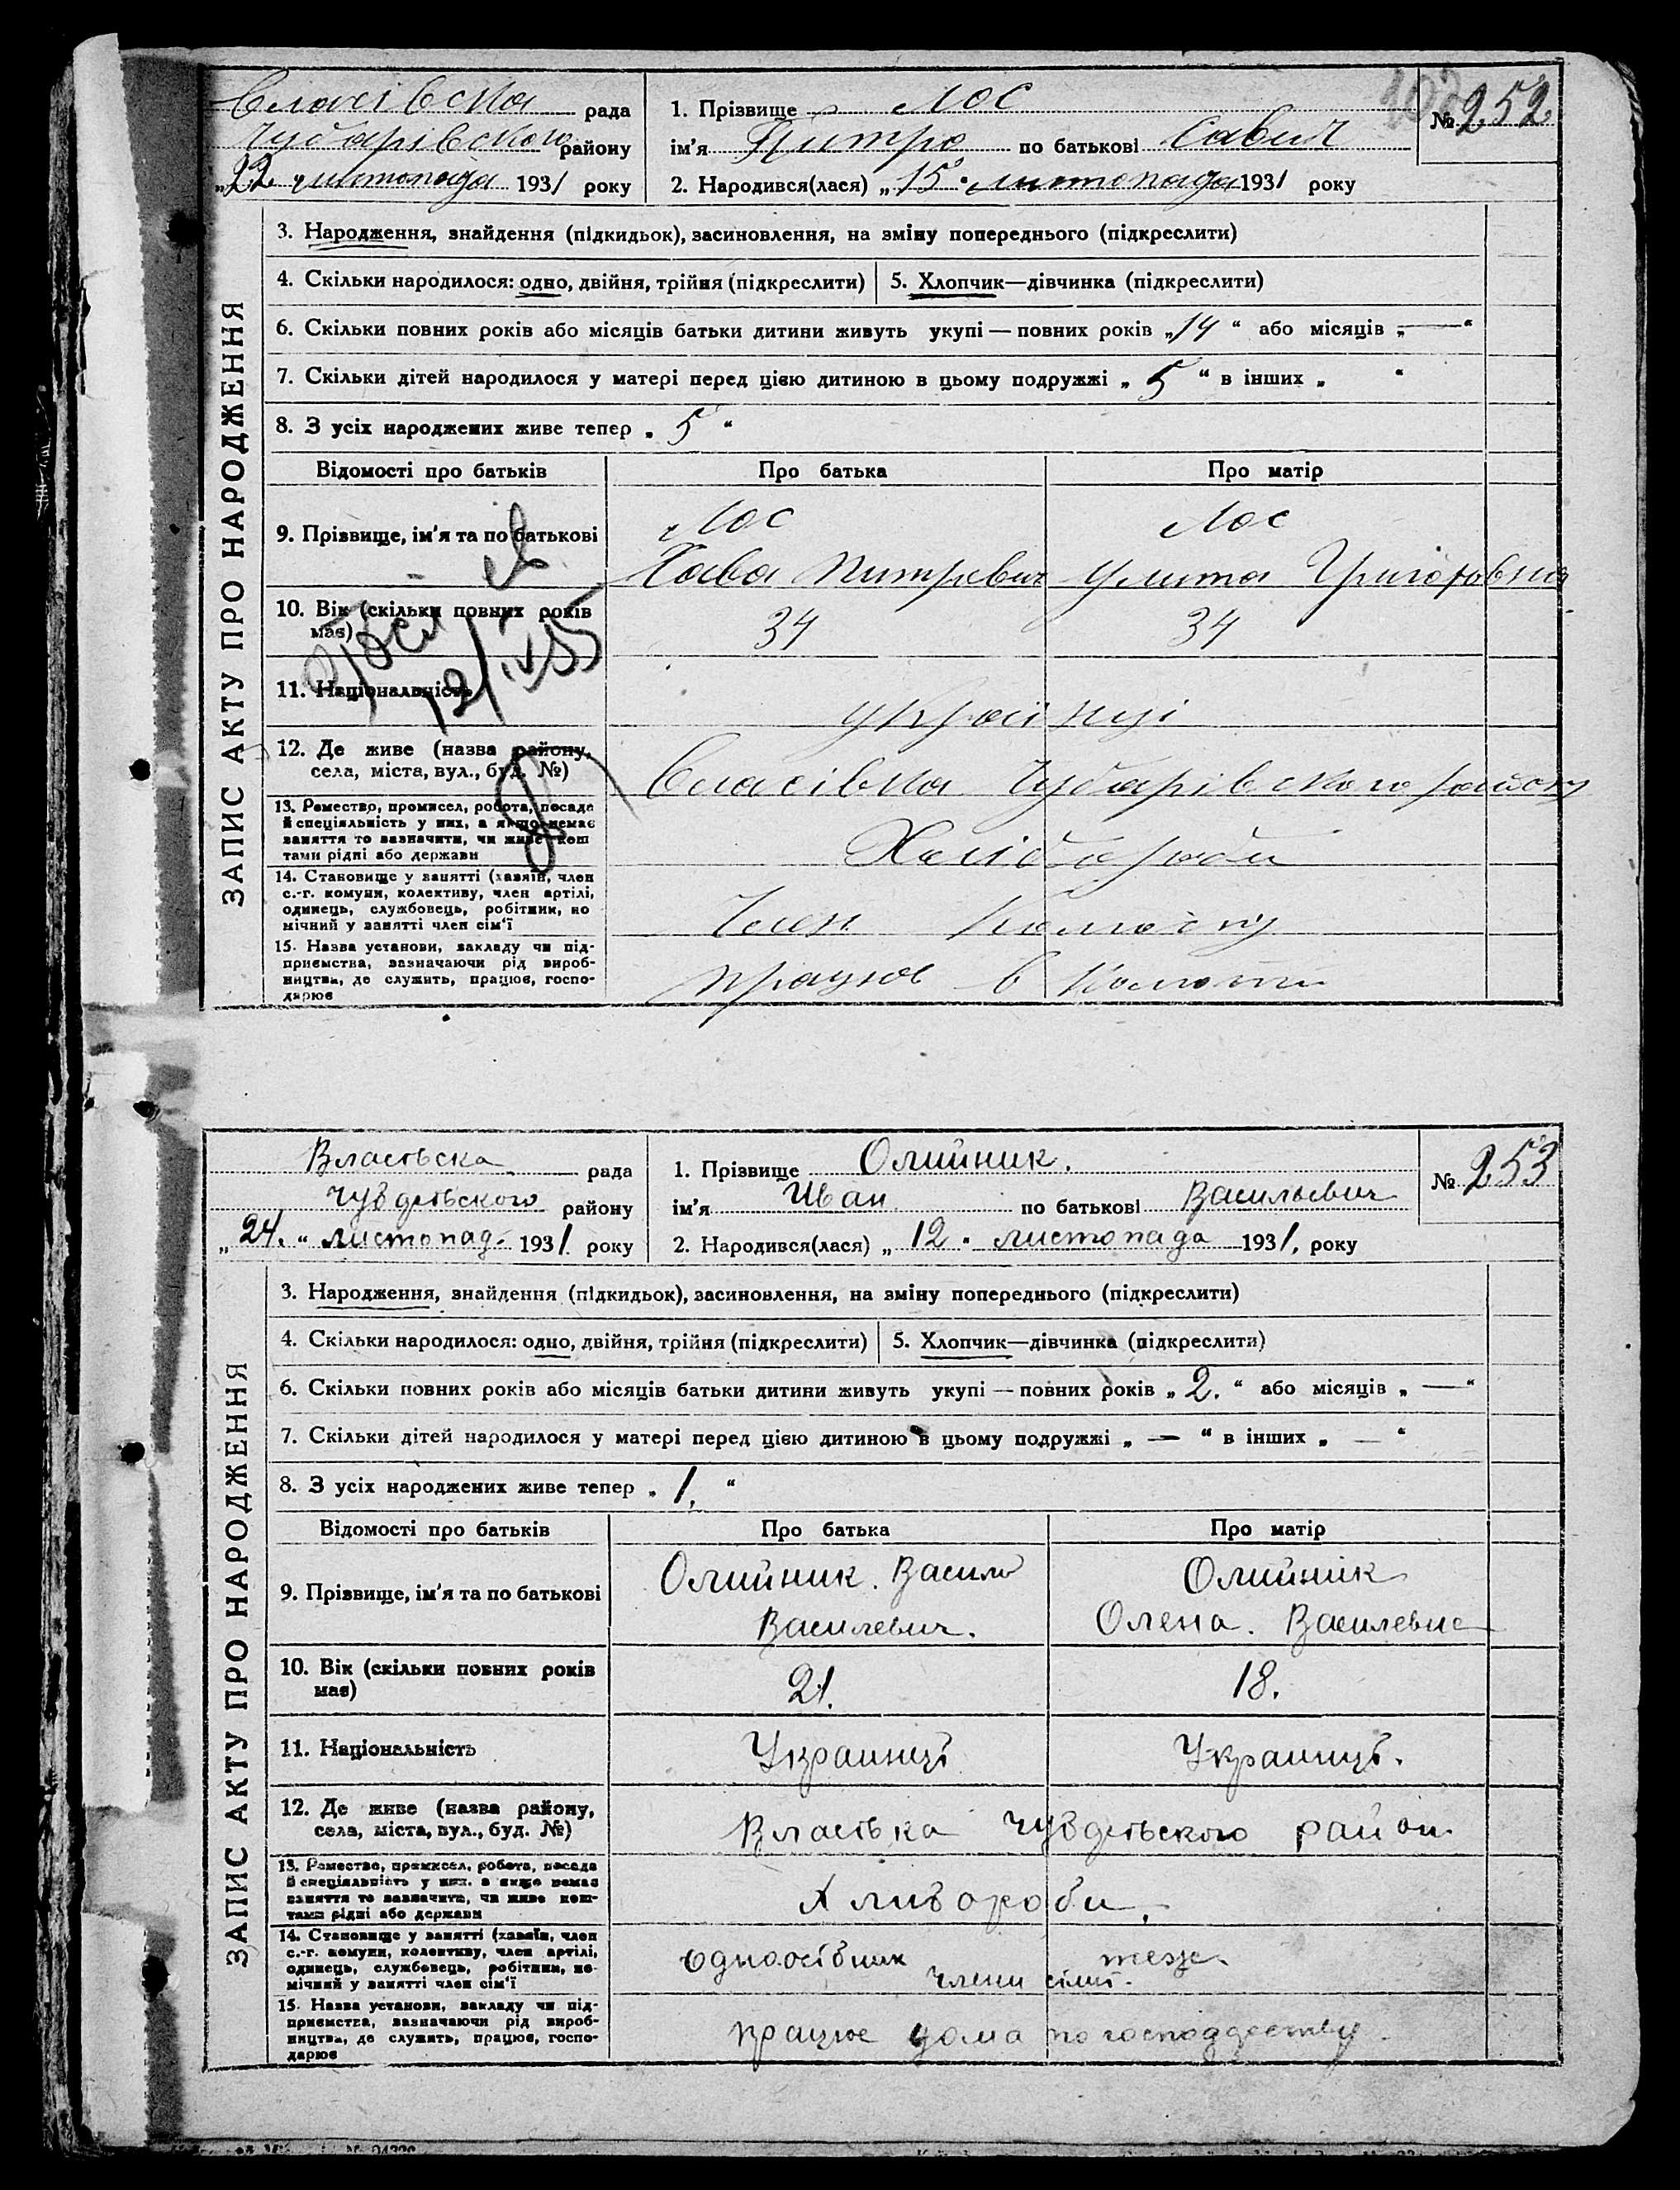 Власівська рада
Чубарівского району
„22 листопада 1931 року
1. Прізвище Лос
ім'я Питро по батькові Савич
2. Народився(лася) „15" листопада 1931 року
№ 252
ЗАПИС АКТУ ПРО НАРОДЖЕННЯ
3. Народження, знайдення (підкидьок), засиновлення, на зміну попереднього (підкреслити)
4. Скільки народилося: одно, двійня, трійня (підкреслити) 5. Хлопчик—дівчинка (підкреслити)
6. Скільки повних років або місяців батьки дитини живуть укупі — повних років „14" або місяців „—"
7. Скільки дітей народилося у матері перед цією дитиною в цьому подружжі „5" в інших „ "
8. З усіх народжених живе тепер „5"
Відомості про батьків Про батька Про матір
9. Прізвище, ім'я та по батькові Лос Лос
Сава Питревич Улита Григоровна
10. Вік (скільки повних років 34 34
має)
11. Національність українці
12/IV 55
12. Де живе (назва району, Власівка Чубарівского району
села, міста, вул., буд. №)
13. Ремество, промисел, робота, посада Хліборобы
й спеціяльність у них, а якщо немає
заняття то вазначити, чи живе кош
тами рідні або держави
14. Становище у занятті (хазяїн, член Член Колгоспу
с.-г. комуни, колективу, член артілі,
одинець, службовець, робітник, по
мічний у занятті член сім'ї
15. Назва установи, закладу чи під- працює в
приємства, вазначаючи рід вироб-
ництва, де служить, працює, госпо-
дарює
Власівська рада
району
„24." листопад. 1931. року
1. Прізвище Олийник.
ім'я Иван по батькові Васильевич
2. Народився(лася) „12" листопада 1931, року
№ 253
ЗАПИС АКТУ ПРО НАРОДЖЕННЯ
3. Народження, знайдення (підкидьок), засиновлення, на зміну попереднього (підкреслити)
4. Скільки народилося: одно, двійня, трійня (підкреслити) 5. Хлопчик—дівчинка (підкреслити)
6. Скільки повних років або місяців батьки дитини живуть укупі — повних років „2." або місяців „—"
7. Скільки дітей народилося у матері перед цією дитиною в цьому подружжі „—" в інших „—"
8. З усіх народжених живе тепер „1."
Відомості про батьків Про батька Про матір
9. Прізвище, ім'я та по батькові Олийник. Василь Олийнік
Василевич. Олена. Василевна
10. Вік (скільки повних років 21. 18.
має)
11. Національність Украинці Украинці.
12. Де живе (назва району, Власівка район
села, міста, вул., буд. №)
13. Ремество, промисел, робота, посада Хлибороби.
й спеціяльність у них, а якщо немає
заняття то вазначити, чи живе кош-
тами рідні або держави
14. Становище у занятті (хазяїн, член одноосібник теже
с.-г. комуни, колективу, член артілі, члени сімї.
одинець, службовець, робітник, по-
мічний у занятті член сім'ї
15. Назва установи, закладу чи під- працює дома по господдрству
приємства, вазначаючи рід вироб-
ництва, де служить, працює, госпо-
дарює